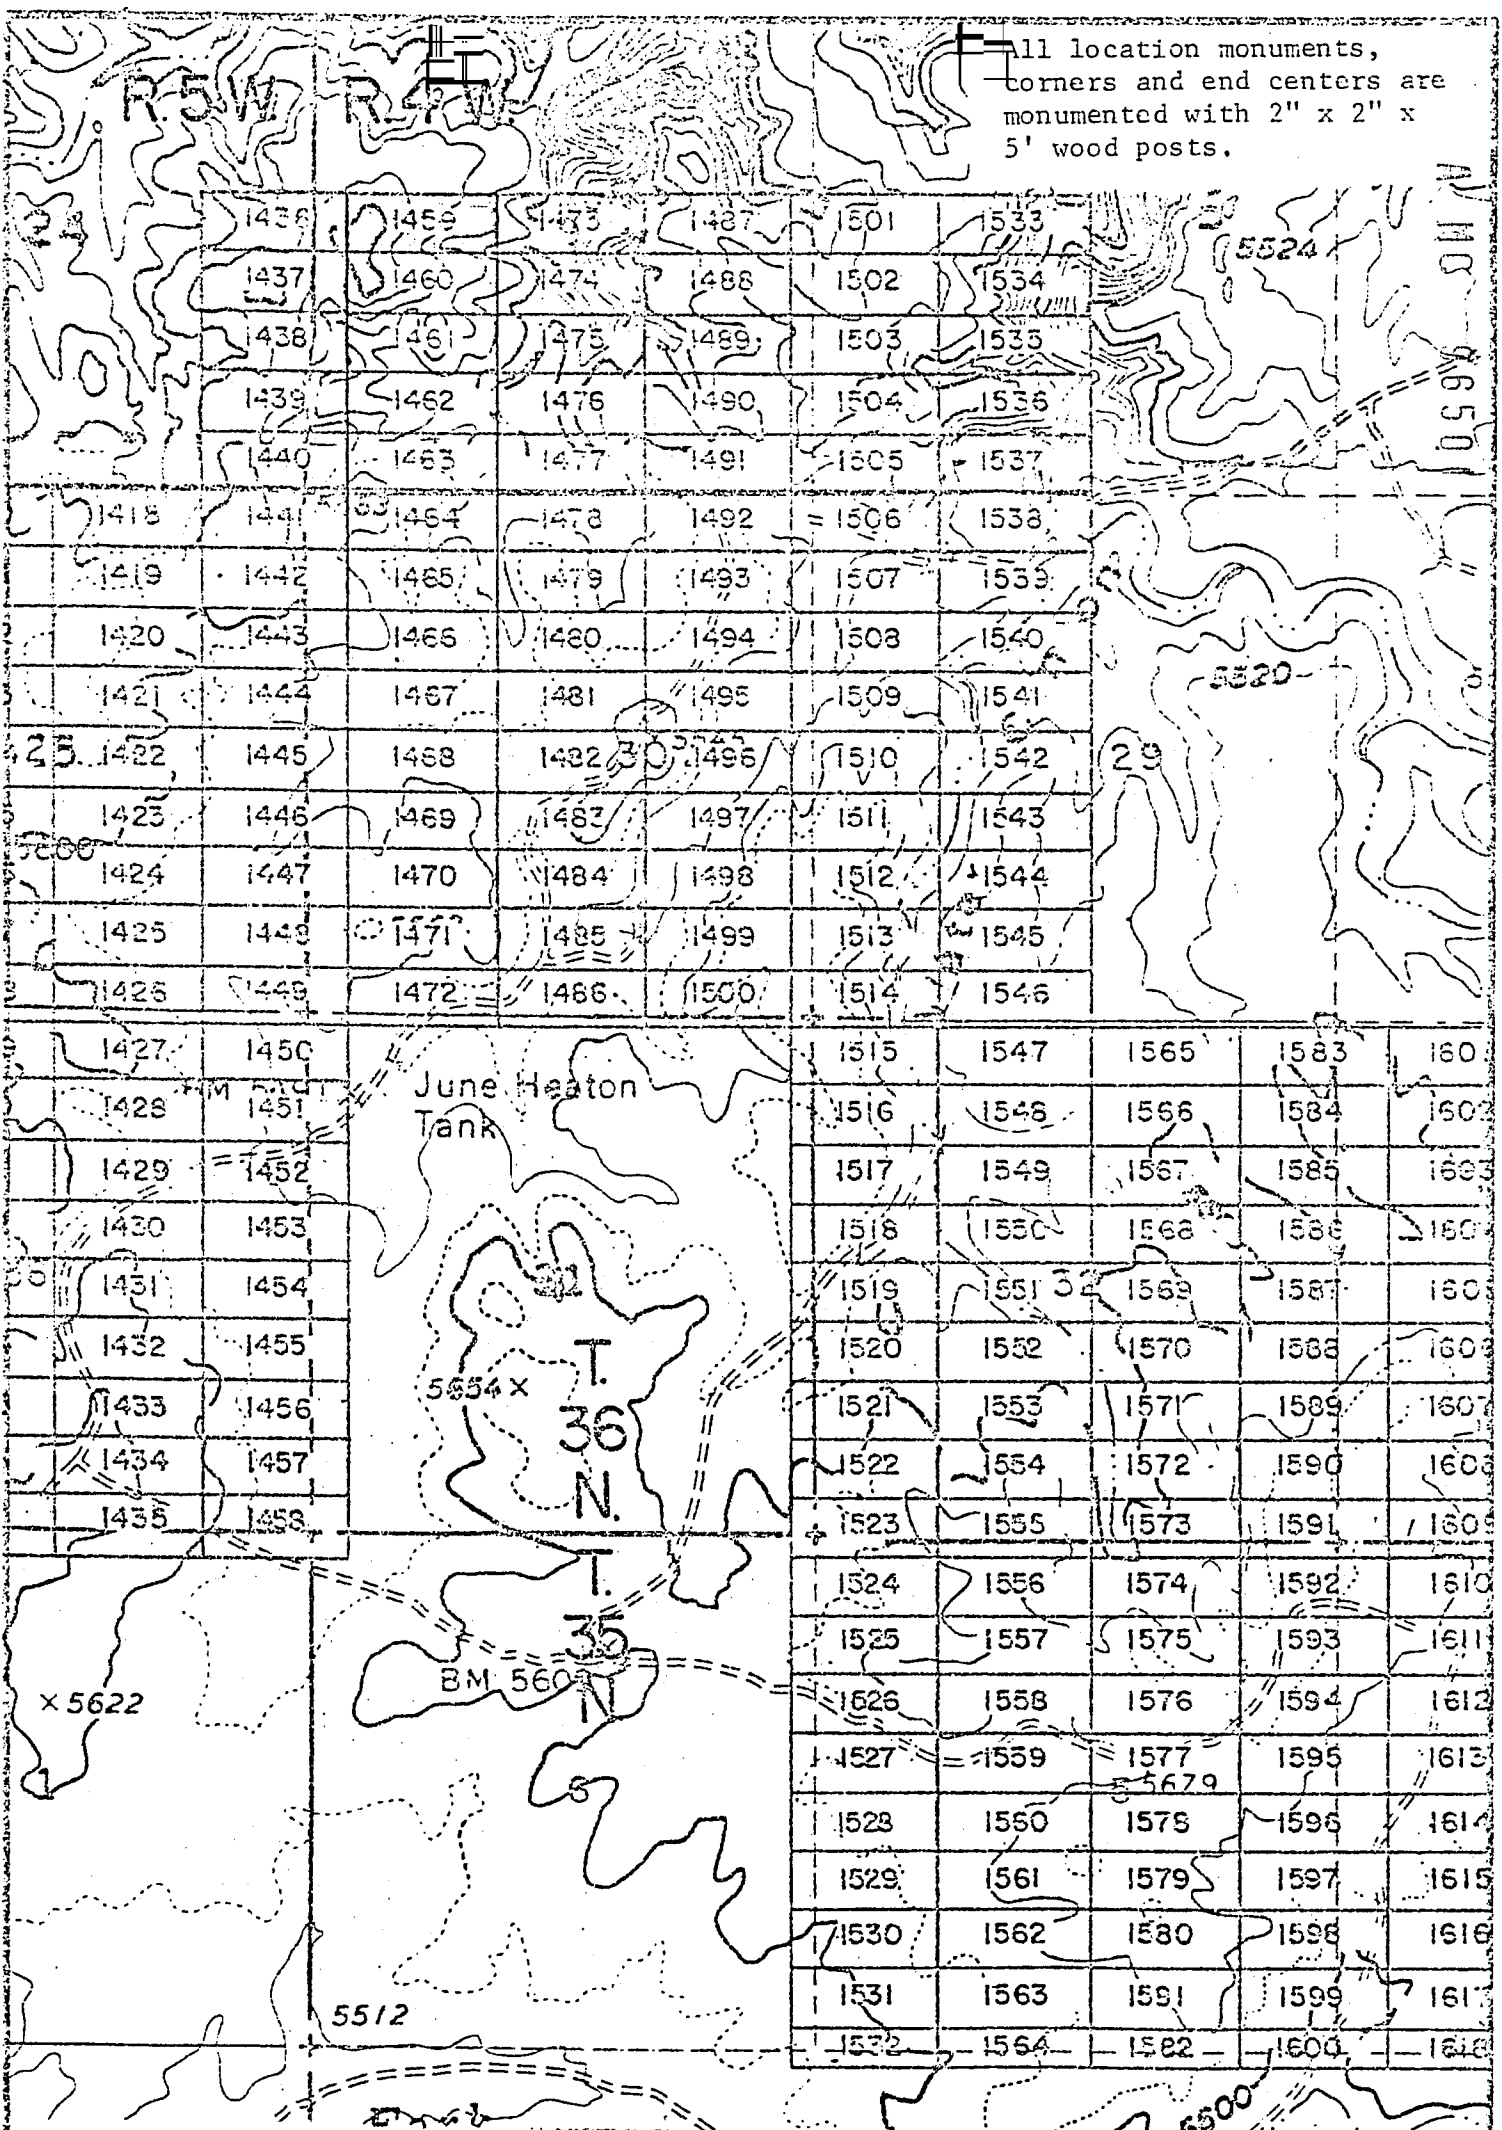 All location monuments,
corners and end centers are
monumented with 2" x 2" x
5' wood posts.
R.5W. R.4W.
1459 1473 1487 1501 1533
5524
1437 1460 1474 1488 1502 1534
1438 1461 1475 1489 1503 1535
1439 1462 1476 1490 1504 1536
1440 1463 1477 1491 1505 1537
1418 1441 1464 1478 1492 1506 1538
1419 1442 1465 1479 1493 1507 1539
1420 1443 1466 1480 1494 1508 1540
1421 1444 1467 1481 1495 1509 1541
5520
1422 1445 1468 1482 30 1496 1510 1542 29
1423 1446 1469 1483 1497 1511 1543
1424 1447 1470 1484 1498 1512 1544
1425 1448 1471 1485 1499 1513 1545
1426 1449 1472 1486 1500 1514 1546
1427 1450 1515 1547 1565 1583
June Heaton
Tank
1428 1451 1516 1548 1566 1584
1429 1452 1517 1549 1567 1585 1603
1430 1453 1518 1550 1568 1586
1431 1454 1519 1551 32 1569 1587
1432 1455 1520 1552 1570 1588
T.
5654 ×
1433 1456 1521 1553 1571 1589 1607
36
1434 1457 1522 1554 1572 1590 1608
N.
1435 1458 1523 1555 1573 1591
T.
1524 1556 1574 1592 1610
35
1525 1557 1575 1593 1611
BM 560
N
× 5622
1526 1558 1576 1594 1612
1527 1559 1577 1595 1613
5679
6
1528 1560 1578 1596 1614
1529 1561 1579 1597 1615
1530 1562 1580 1598 1616
1531 1563 1581 1599 1617
5512
1532 1564 1582 1600 1618
5500